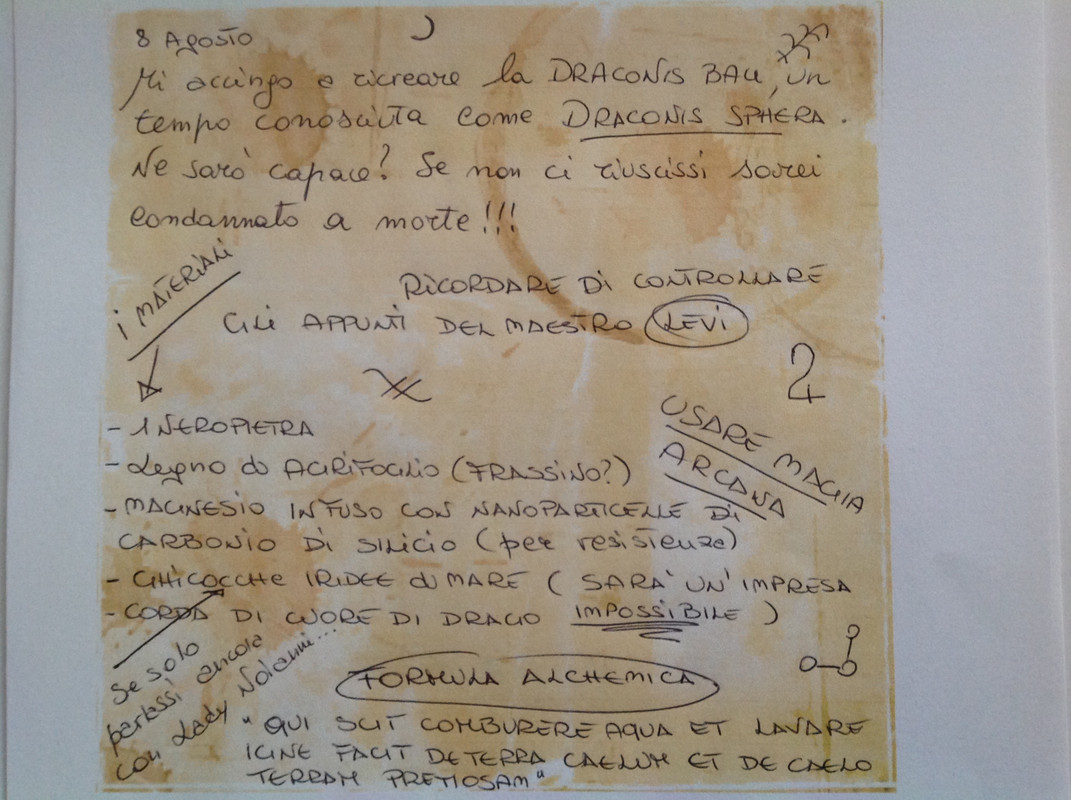 8 AGOSTO
Mi accingo a ricreare la DRACONIS BALL, un
tempo conosciuta come DRACONIS SPHERA.
Ne sarò capace? Se non ci riuscissi sarei
condannato a morte!!!
I MATERIALI
RICORDARE DI CONTROLLARE
GLI APPUNTI DEL MAESTRO LEVI
USARE MAGIA
ARCANA
- 1 NEROPIETRA
- Legno di AGRIFOGLIO (FRASSINO?)
- MAGNESIO INFUSO CON NANOPARTICELLE DI
CARBONIO DI SILICIO (per resistenza)
- CHICOCCHE IRIDEE di MARE ( SARA' UN' IMPRESA
- CORDA DI CUORE DI DRAGO IMPOSSIBILE )
Se solo
parlassi ancora
con Lady
FORMULA ALCHEMICA
"QUI SCIT COMBURERE AQUA ET LAVARE
IGNE FACIT DE TERRA CAELUM ET DE CAELO
TERRAM PRETIOSAM"